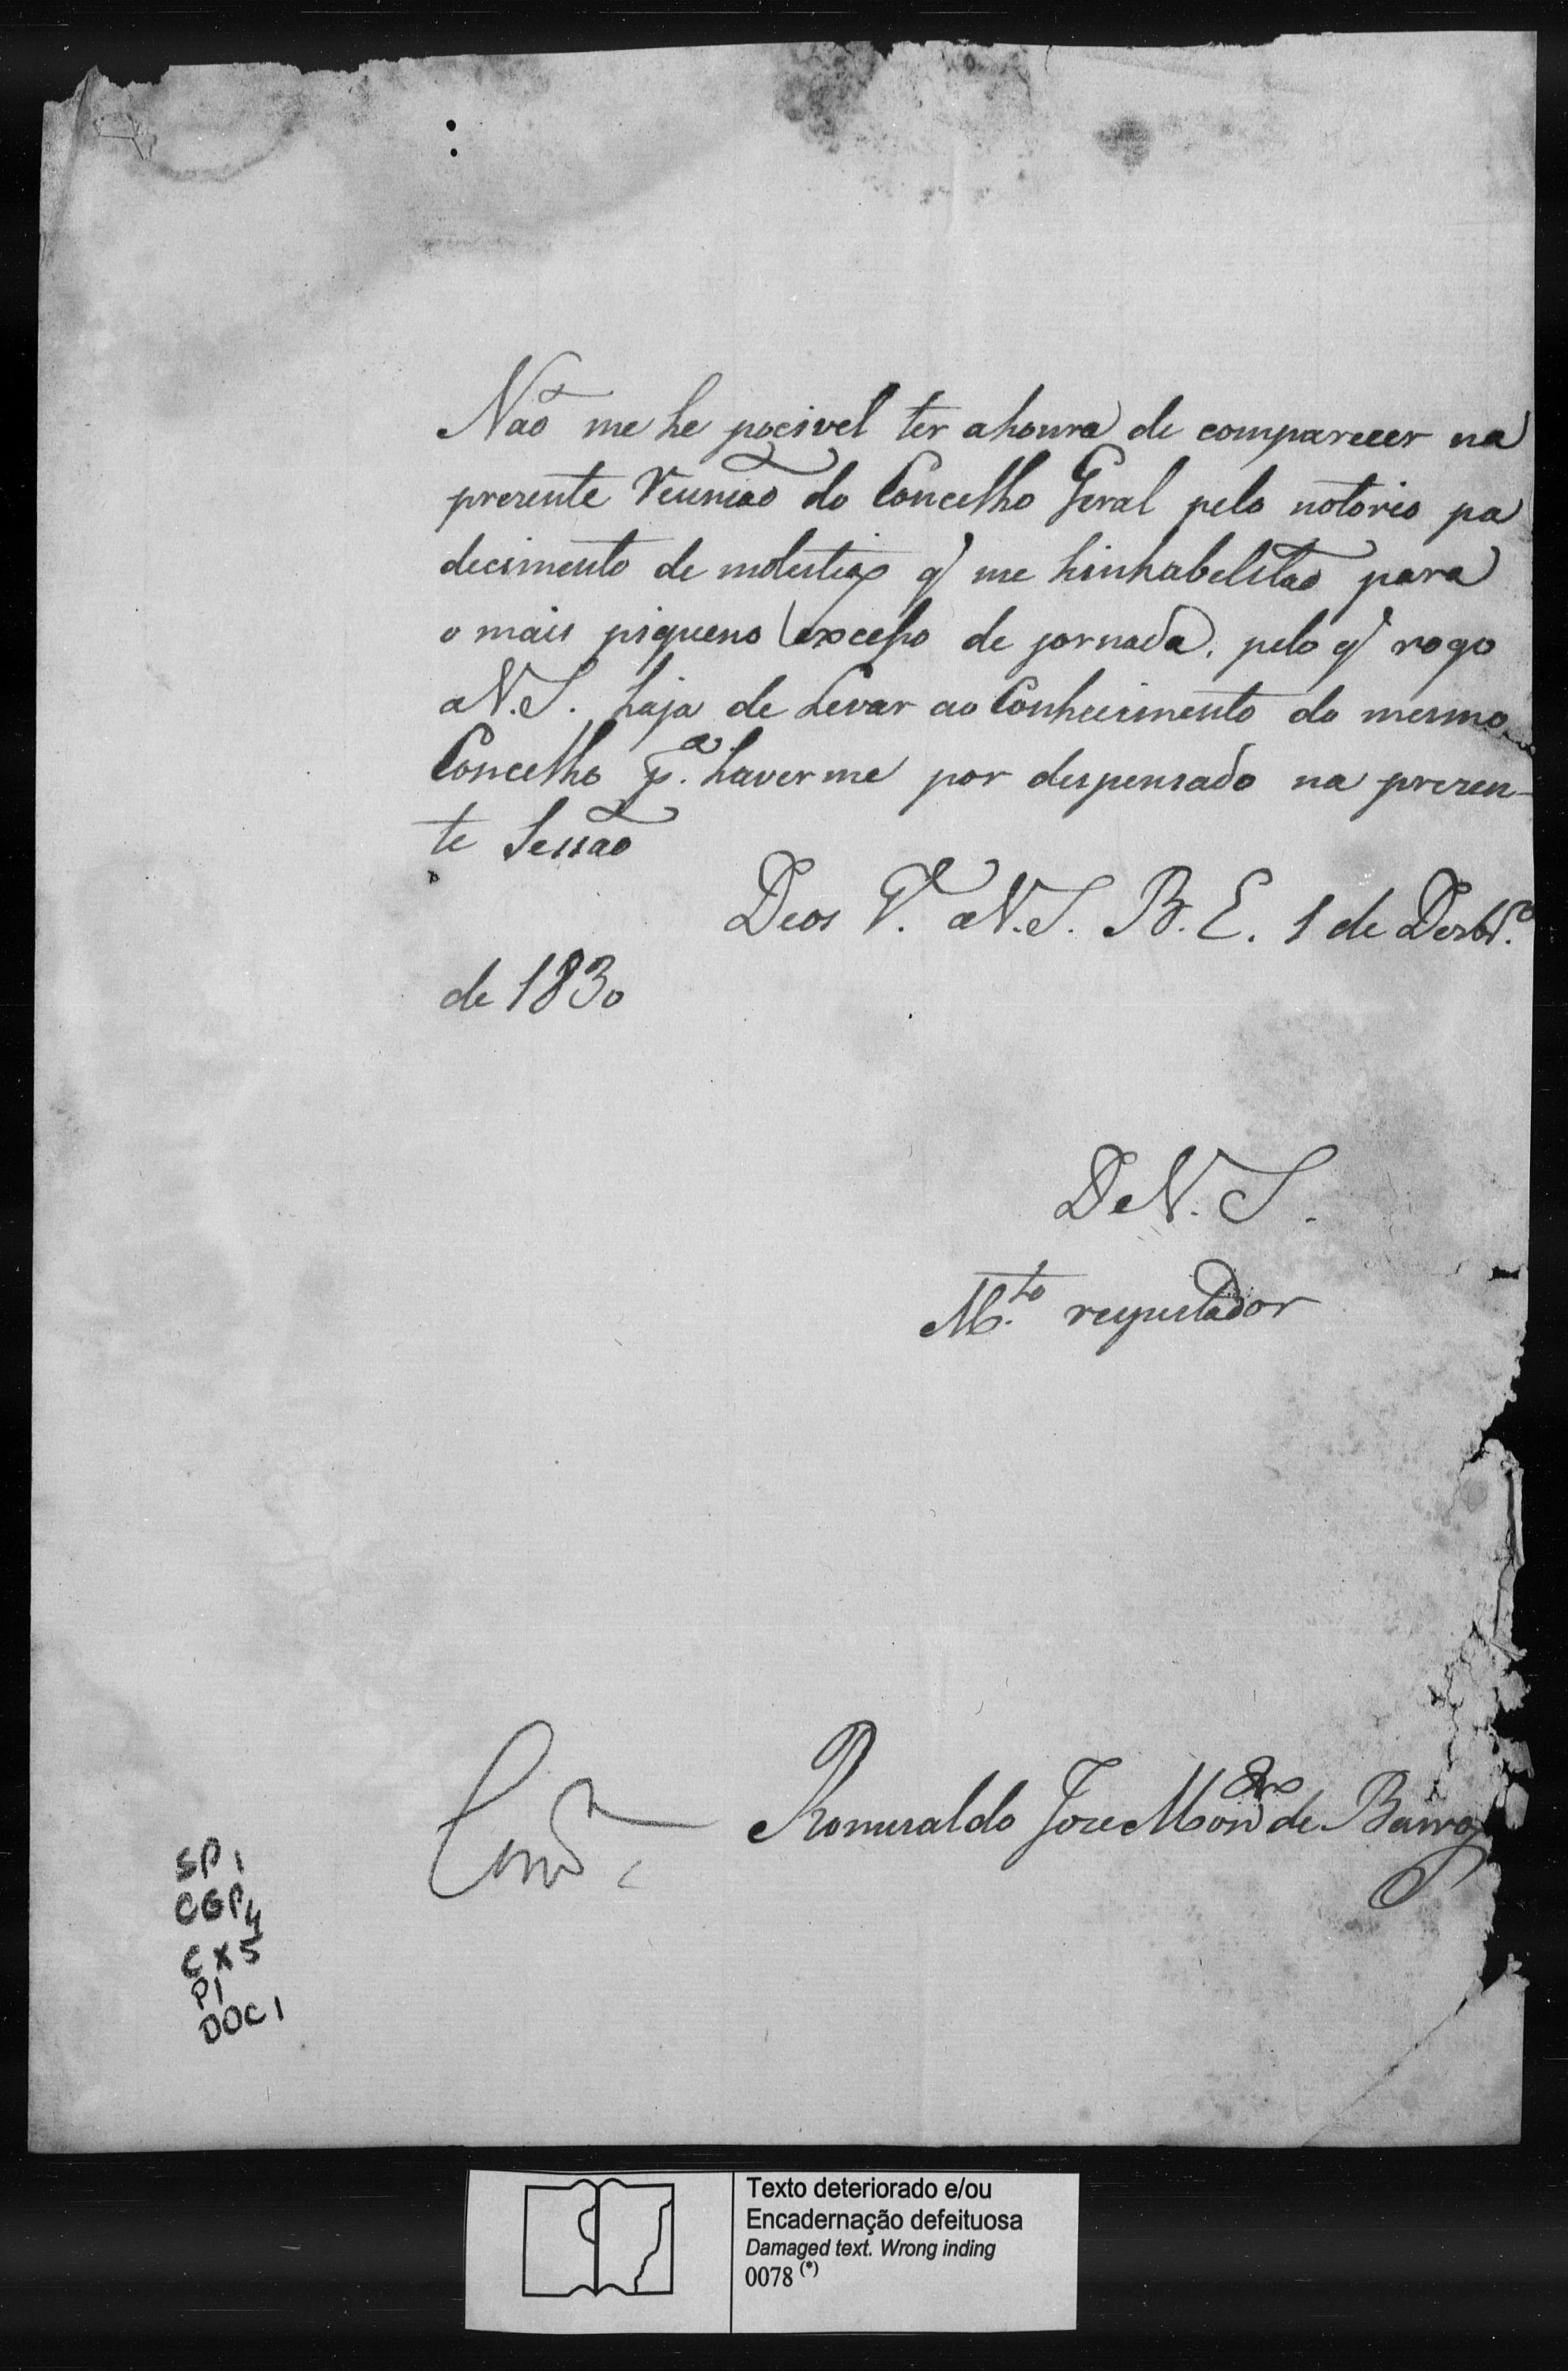 Não me he pocivel ter a honra de comparecer na
prezente Reunião do Concelho Geral pelo notorio pa
decimento de molestias q' me hinhabelitão para
o mais piqueno excesso de jornada, pelo q' rogo
a V. S. haja de Levar ao Conhecimento do mesmo
Concelho p.ª haver me por despensado na prezen-
te Sessão
Deos G.e a V. S. B. E. 1 de Dezbr.o
de 1830
De V. S.
M.to respeitador
Romualdo Joze Monr.o de Barros
SP1
CGP4
CX5
P1
DOC1
Texto deteriorado e/ou
Encadernação defeituosa
Damaged text. Wrong inding
0078 (*)